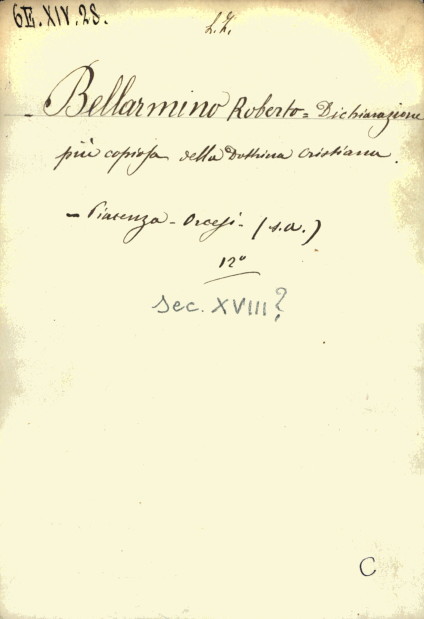 6E.XIV.28.
L.Z.
Bellarmino Roberto = Dichiarazione
più copiosa della Dottrina Cristiana.
– Piacenza – Orcesi – (s.a.)
12°
sec. XVIII?
C